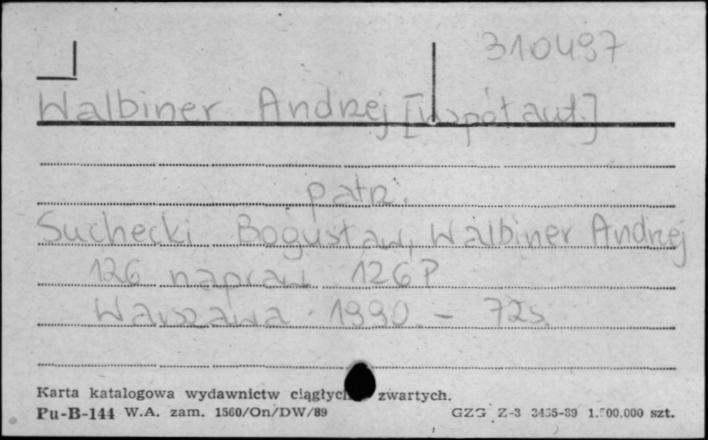 310497
Walbiner Andrzej [współaut.]
patrz:
Suchecki Bogusław, Walbiner Andrzej
126 napraw 126P
Warszawa 1990. - 72s.
Karta katalogowa wydawnictw ciągłych zwartych.
Pu-B-144 W.A. zam. 1560/On/DW/89 GZG Z-3 3435-89 1.500.000 szt.